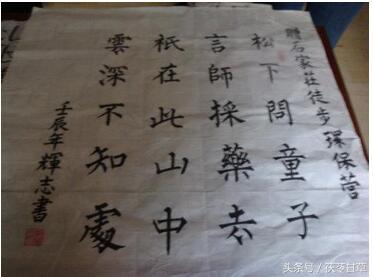 贈石家莊徒步環保營
松下問童子
言師採藥去
祇在此山中
雲深不知處
壬辰年輝志書
头条号／茯苓甘草